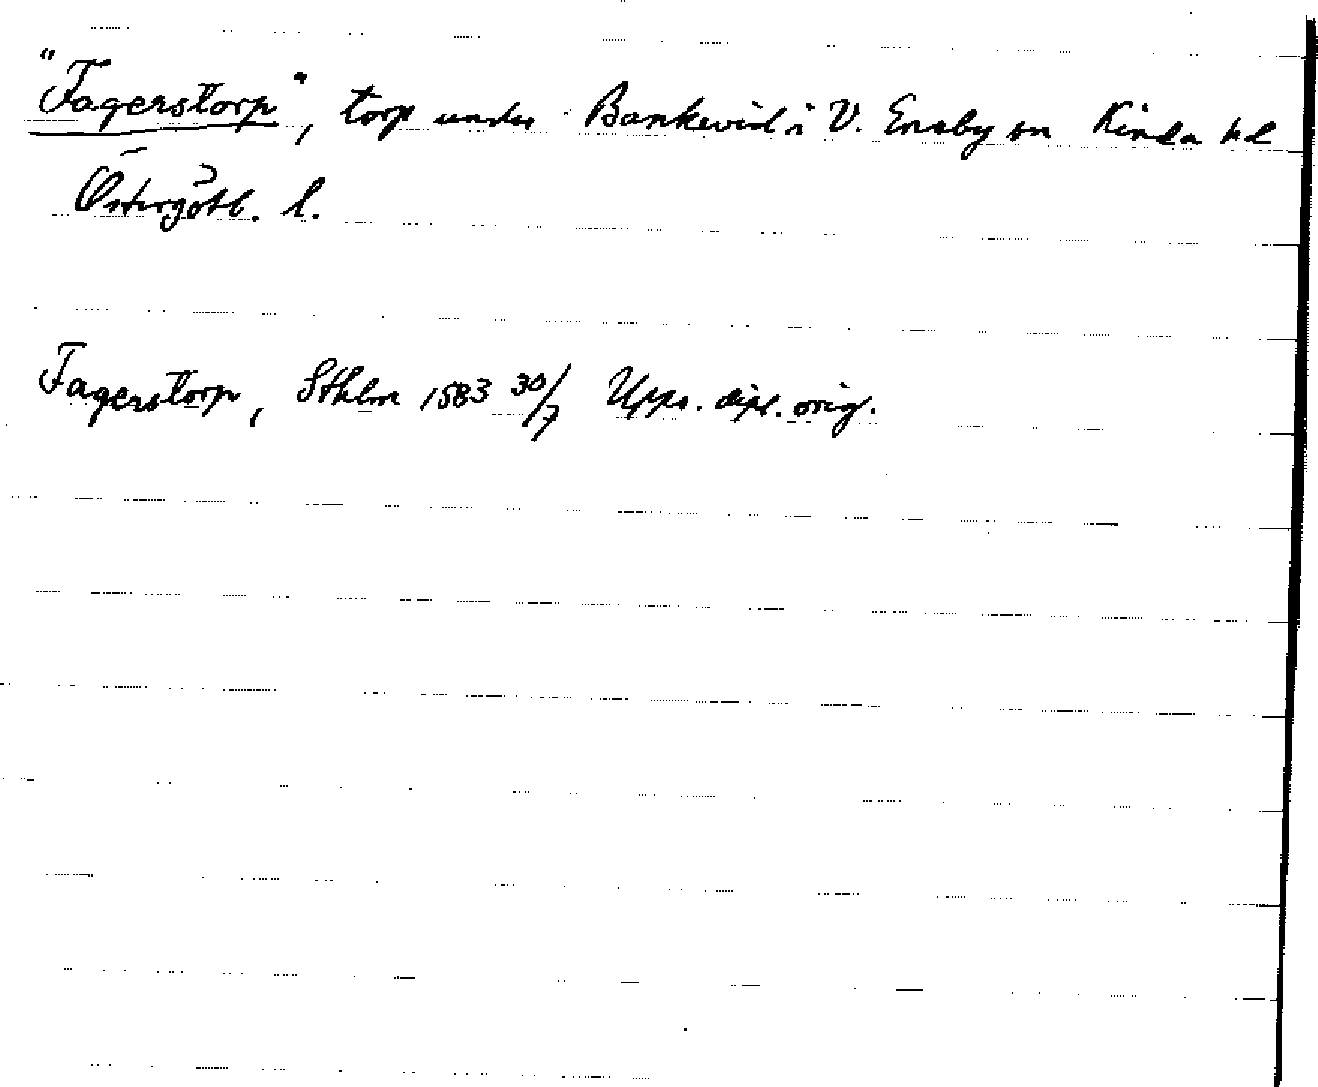 "Fagerstorp", torp under Bankevid i V. Eneby sn Kinda hd
Östergötl. l.
Fagerstorp, Sthlm 1583 30/7 Upps. dipl. orig.